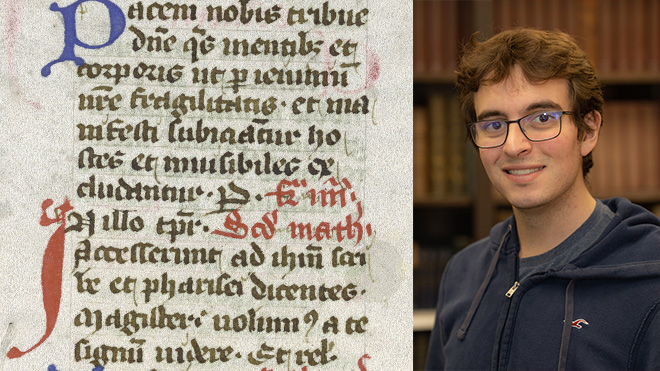 Pacem nobis tribue
dn̄e q̄s mentibꝫ et
corporis ut p ieiuniū
nr̄e fragilitatis · et ma
nifesti subiciātur ho
stes et inuisibiles ex
cludantur · P ·
In illo tp̄r · Scd̄ math ·
Accesserunt ad ihm̄ scri
be et pharisei dicentes ·
Magister · uolumꝰ a te
signū uidere · Et rel̄ ·